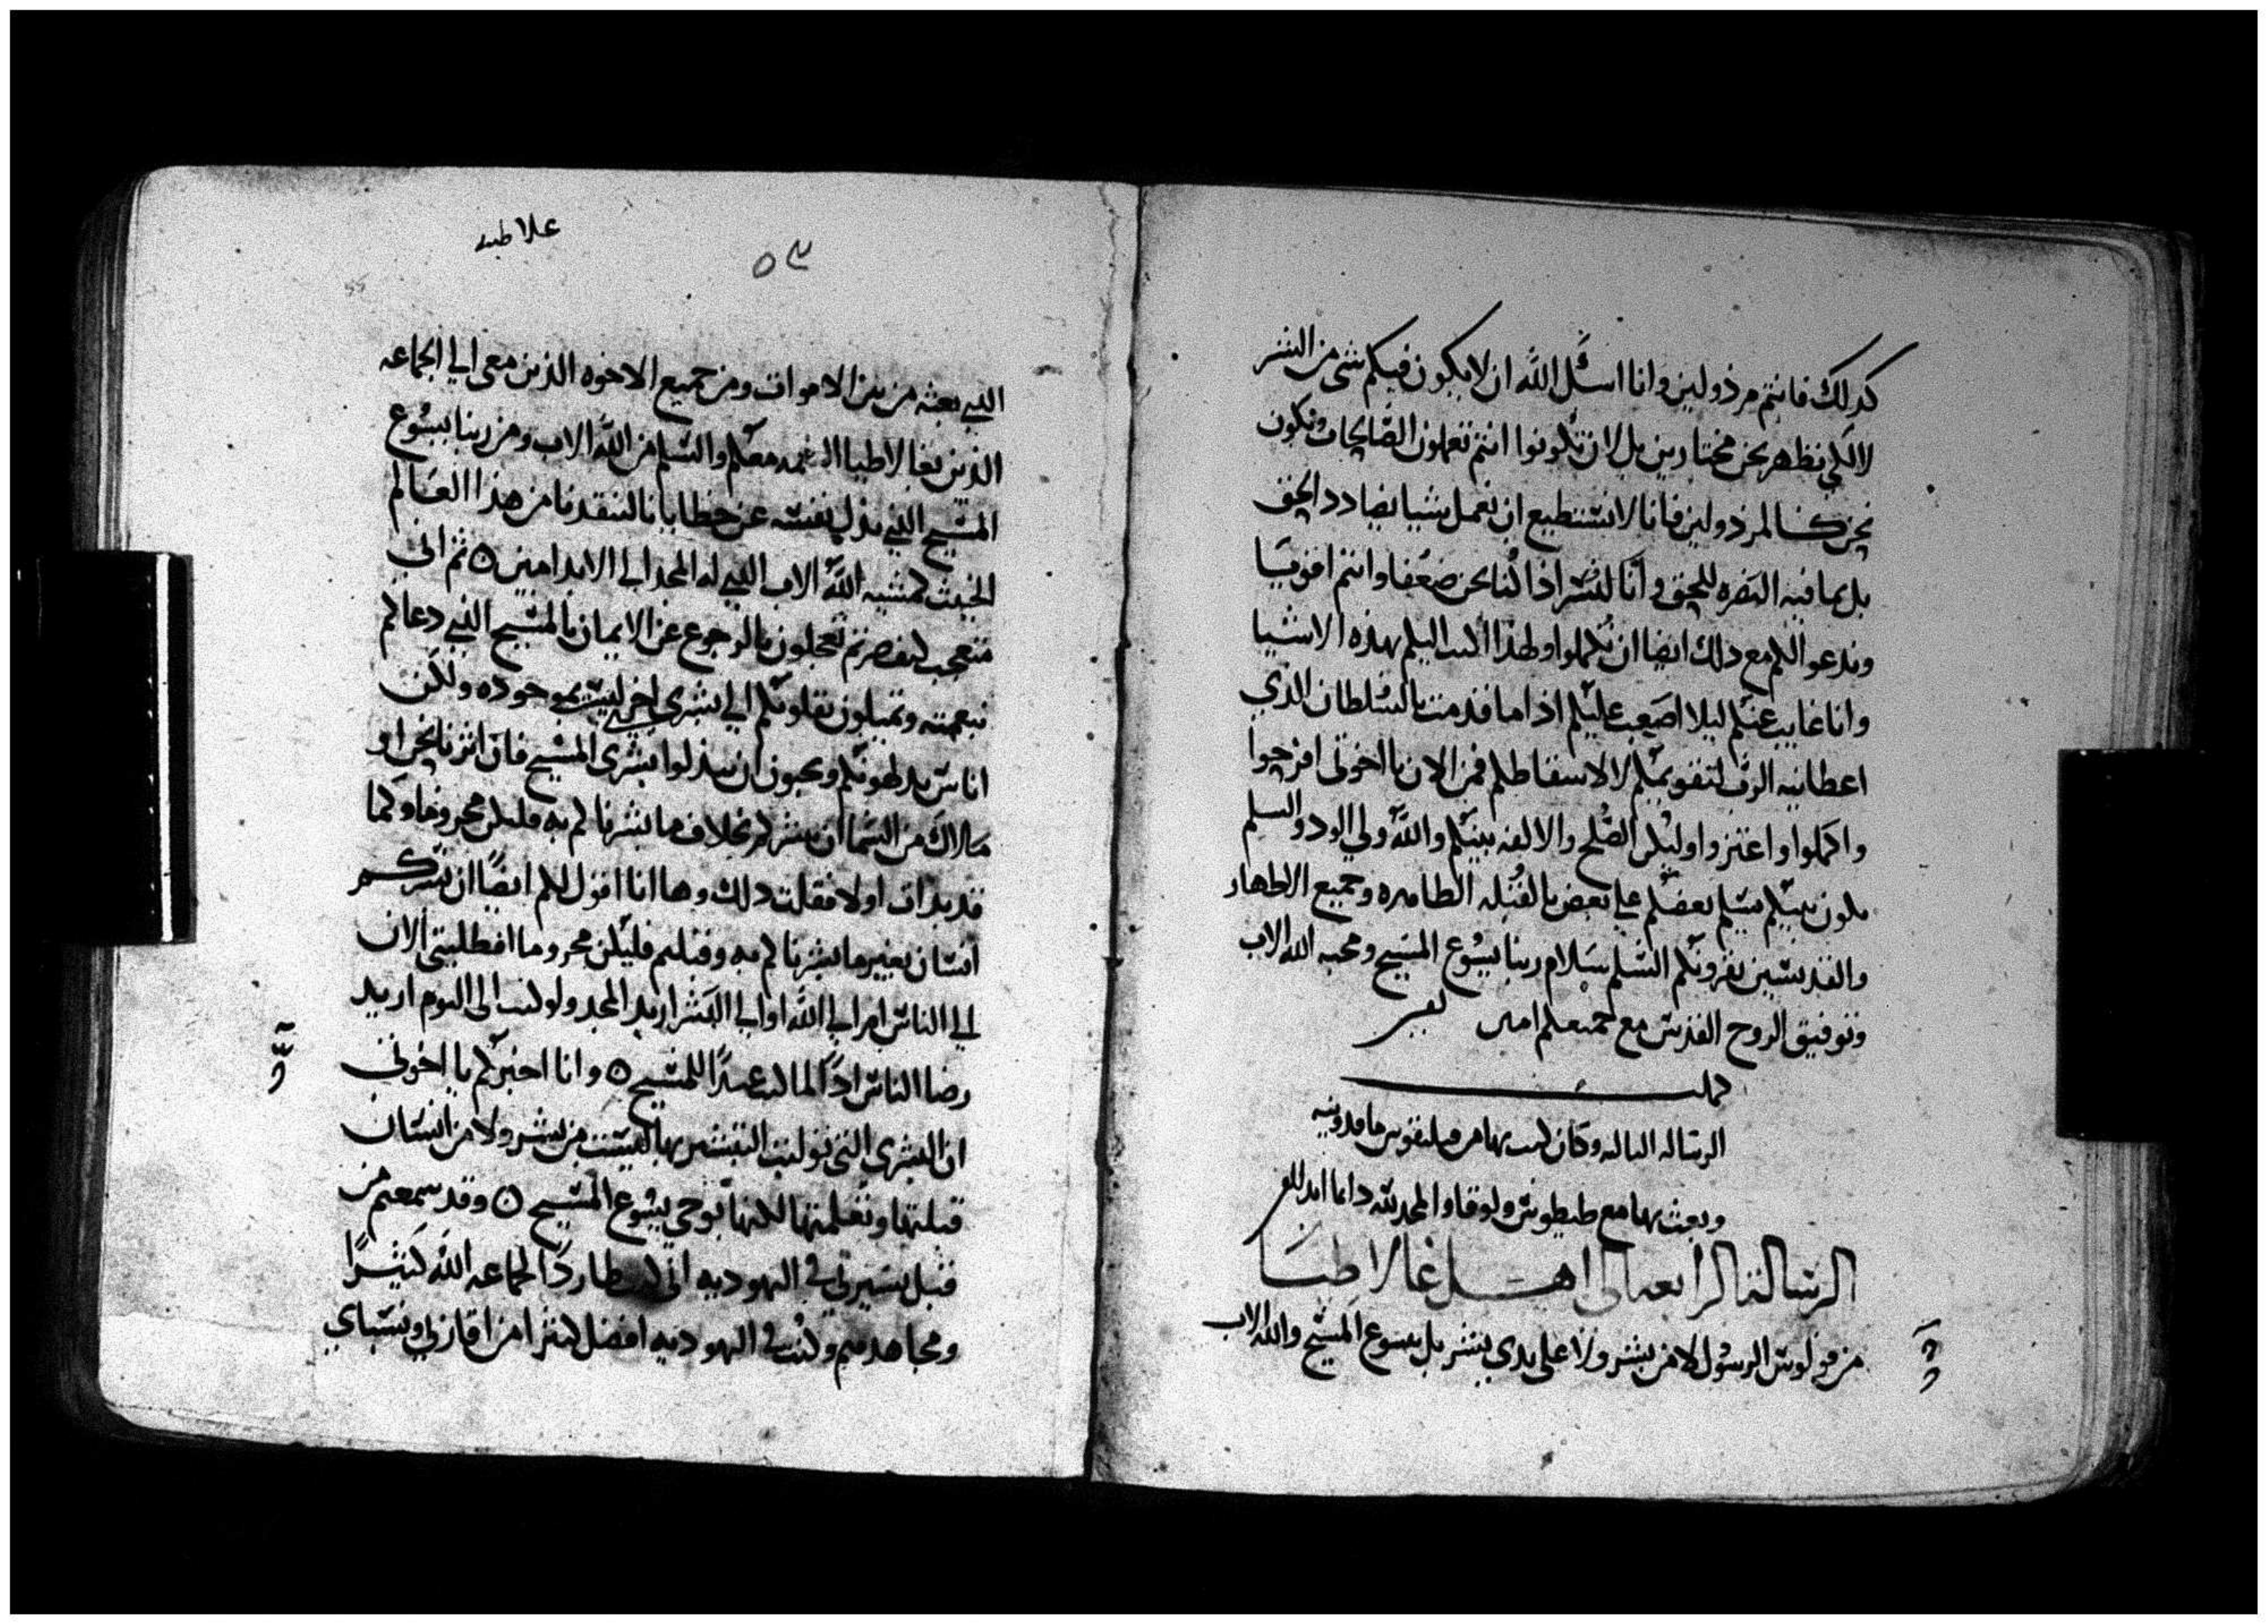 كدلك فانتم مرذولين وانا اسئل الله ان لا يكون فيكم شى من الشر
لا لكي نظهر نحن مختارين بل لان تكونوا انتم تعملون الصالحات ونكون
نحن كالمرذولين فانا لا نستطيع ان نعمل شيا يضادد الحق
بل بما فيه النصره للحق وانا لنسر اذا كنا نحن ضعفا وانتم اقويا
وندعوا لكم مع دلك ايضا ان تكملوا ولهذا اكتب اليكم بهذه الاشيا
وانا غايب عنكم ليلا اصعب عليكم اذا ما قدمت بالسلطان الذي
اعطانيه الرب لتقويمكم لا لاسقاطكم فمن الان يا اخوتى افرحوا
واكملوا واعتزوا وليكن الصلح والالفه بينكم والله ولي الود والسلم
يكون بينكم يسلم بعضكم علي بعض بالقبله الطاهره وجميع الاطهار
والقديسين يقرونكم السلم سلام ربنا يسوع المسيح ومحبه الله الاب
وتوفيق الروح القدس مع جميعكم امين
كملت
الرساله الثالثه وكان كتب بها من فيلبفوس ماقدونيه
وبعث بها مع طيطوس ولوقا والمجد لله دايما ابدا
الرسالة الرابعه الى اهل غالاطيا
من فولوس الرسول لا من بشر ولا على يدي بشر بل بيسوع المسيح والله الاب
غلاطيه
٥٣
الذي بعثه من بين الاموات ومن جميع الاخوه الذين معى الي الجماعه
الذين بغالاطيا النعمه معكم والسلم من الله الاب ومن ربنا يسوع
المسيح الذي بذل نفسه عن خطايانا لينقدنا من هذا العالم
الخبيث كمشيه الله الاب الذي له المجد الي الابد امين ٥ ثم انى
متعجب كيف صرتم تعجلون بالرجوع عن الايمان بالمسيح الذي دعاكم
بنعمته وتميلون بقلوبكم الي بشرى اخرى ليست بموجوده ولكن
اناس يدلهونكم ويحبون ان يبدلوا بشرى المسيح فان اثرنا نحن او
ملاك من السما ان نبشركم بخلاف ما بشرناكم به فليكن محروما وكما
قد بدات اولا فقلت دلك وها انا اقول لكم ايضًا ان بشركم
انسان بغير ما بشرناكم به وقبلتم فليكن محروما افطلبتى الان
الي الناس ام الي الله او الي البشر اريد المجد ولو كنت الى اليوم اريد
رضا الناس اذًا لما كنت عبدًا للمسيح ٥ وانا اخبركم يا اخوتي
ان البشرى التى توليت التبشير بها ليست من بشر ولا من انسان
قبلتها وتعلمتها لكنها بوحي يسوع المسيح ٥ وقد سمعتم من
قبل بسيرتي في اليهوديه انى كنت طاردًا لجماعه الله كثيرًا
ومجاهدهم وكنت في اليهوديه افضل كثيرا من اقاربي ونسباي